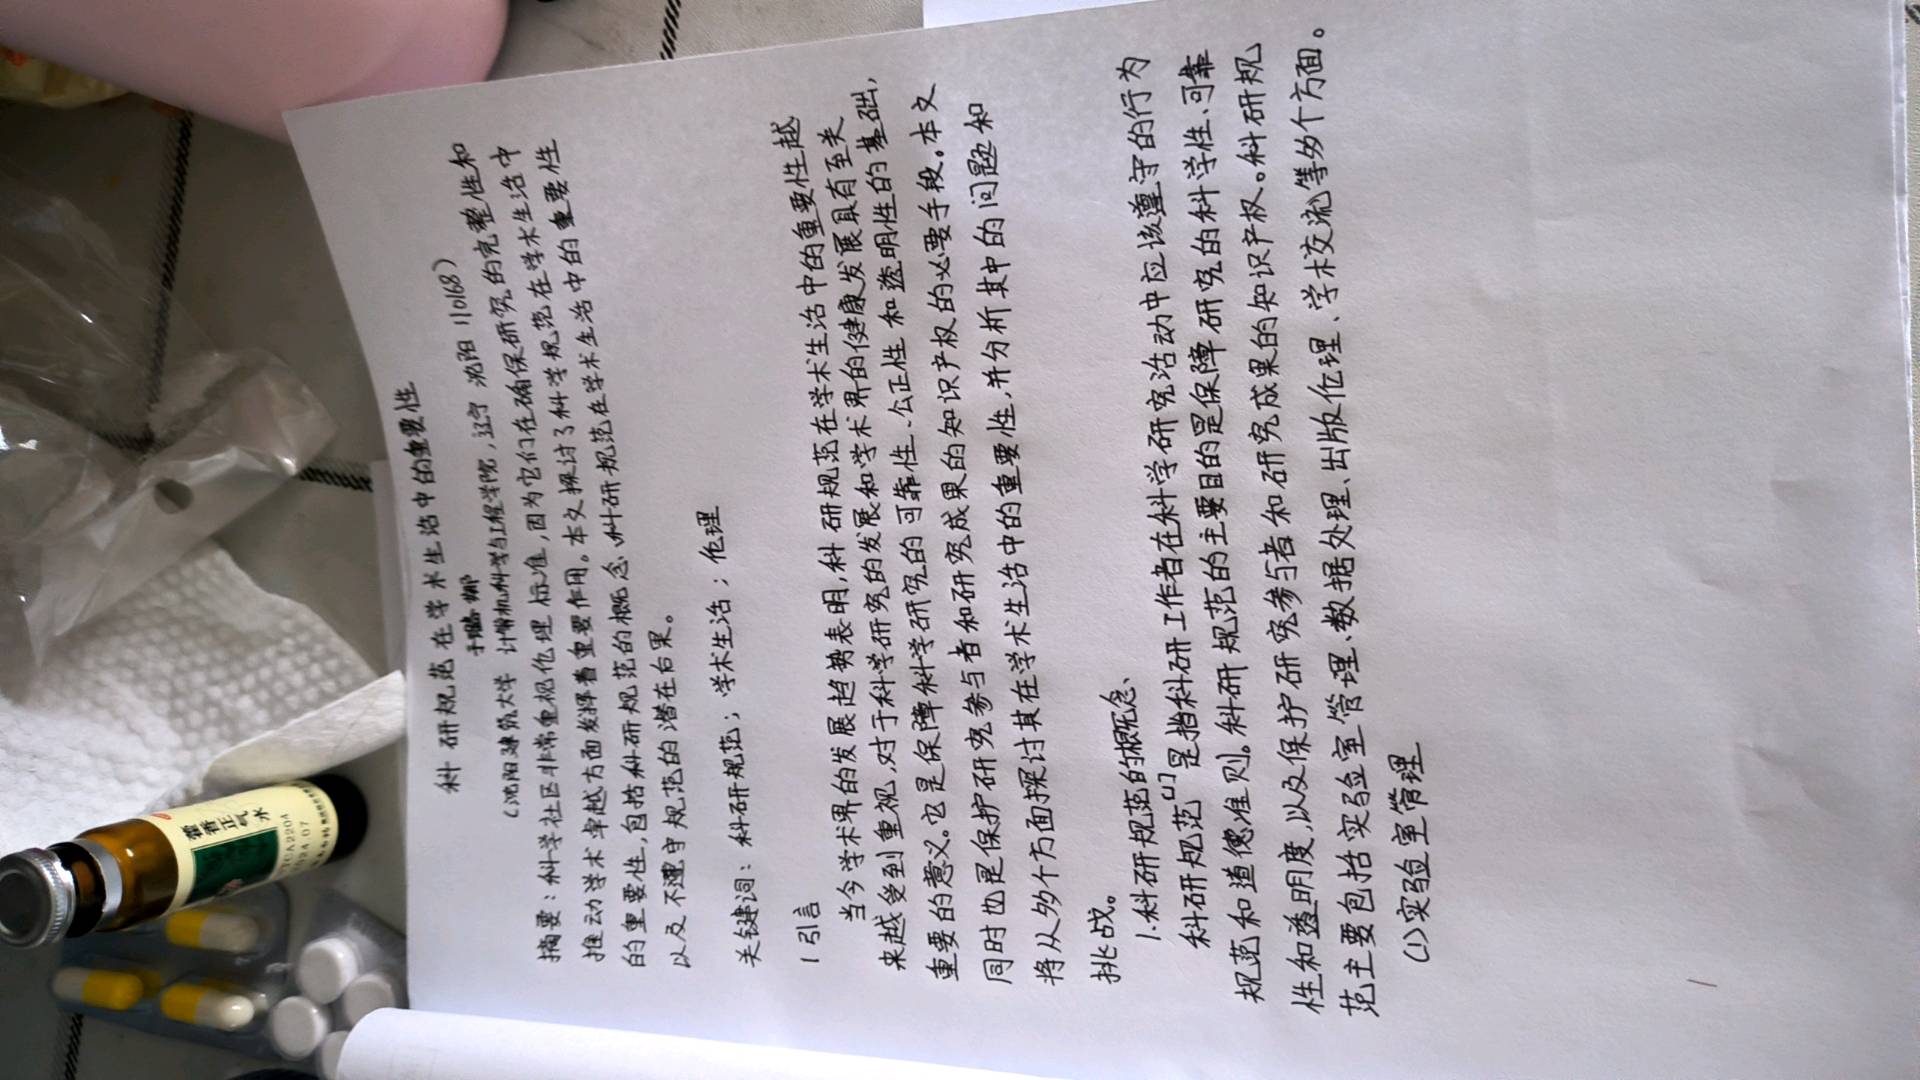 科研规范在学术生活中的重要性
于
(沈阳建筑大学 计算机科学与工程学院,辽宁 沈阳 110168)
摘要:科学社区非常重视伦理标准,因为它们在确保研究的完整性和
推动学术卓越方面发挥着重要作用。本文探讨了科学规范在学术生活中
的重要性,包括科研规范的概念、科研规范在学术生活中的重要性
以及不遵守规范的潜在后果。
关键词:科研规范;学术生活;伦理
1 引言
当今学术界的发展趋势表明,科研规范在学术生活中的重要性越
来越受到重视,对于科学研究的发展和学术界的健康发展具有至关
重要的意义。它是保障科学研究的可靠性、公正性和透明性的基础,
同时也是保护研究参与者和研究成果的知识产权的必要手段。本文
将从多个方面探讨其在学术生活中的重要性,并分析其中的问题和
挑战。
1.科研规范的概念、
科研规范[1]是指科研工作者在科学研究活动中应该遵守的行为
规范和道德准则。科研规范的主要目的是保障研究的科学性、可靠
性和透明度,以及保护研究参与者和研究成果的知识产权。科研规
范主要包括实验室管理、数据处理、出版伦理、学术交流等多个方面。
(1)实验室管理
藿香正气水